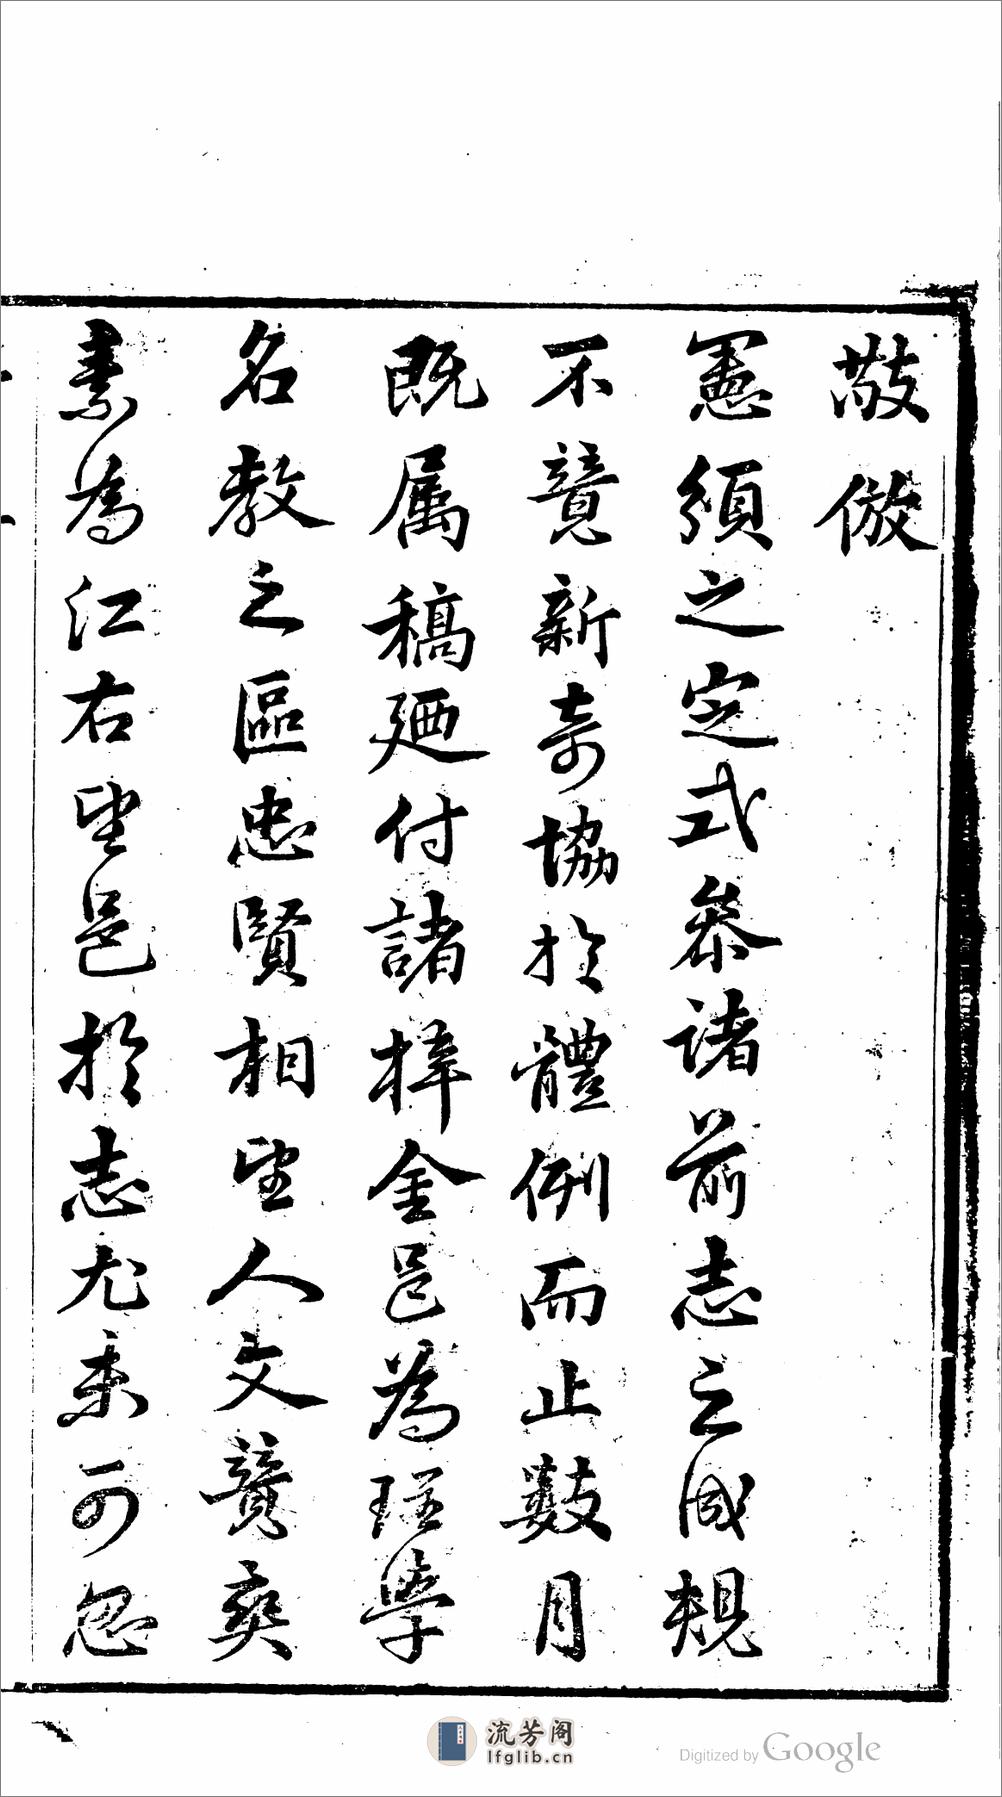 敬倣
憲頒之定式叅諸前志之成規
不竟新奇協於體例而止數月
既属稿廼付諸梓金邑為理學
名教之區忠賢相望人文贊奕
素為江右望邑於志尤未可忽
流芳阁
lfglib.cn
Digitized by Google